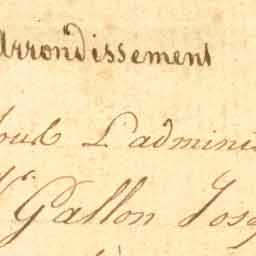 Arrondissement
Sous L'admini
Mr. Gallon Jos